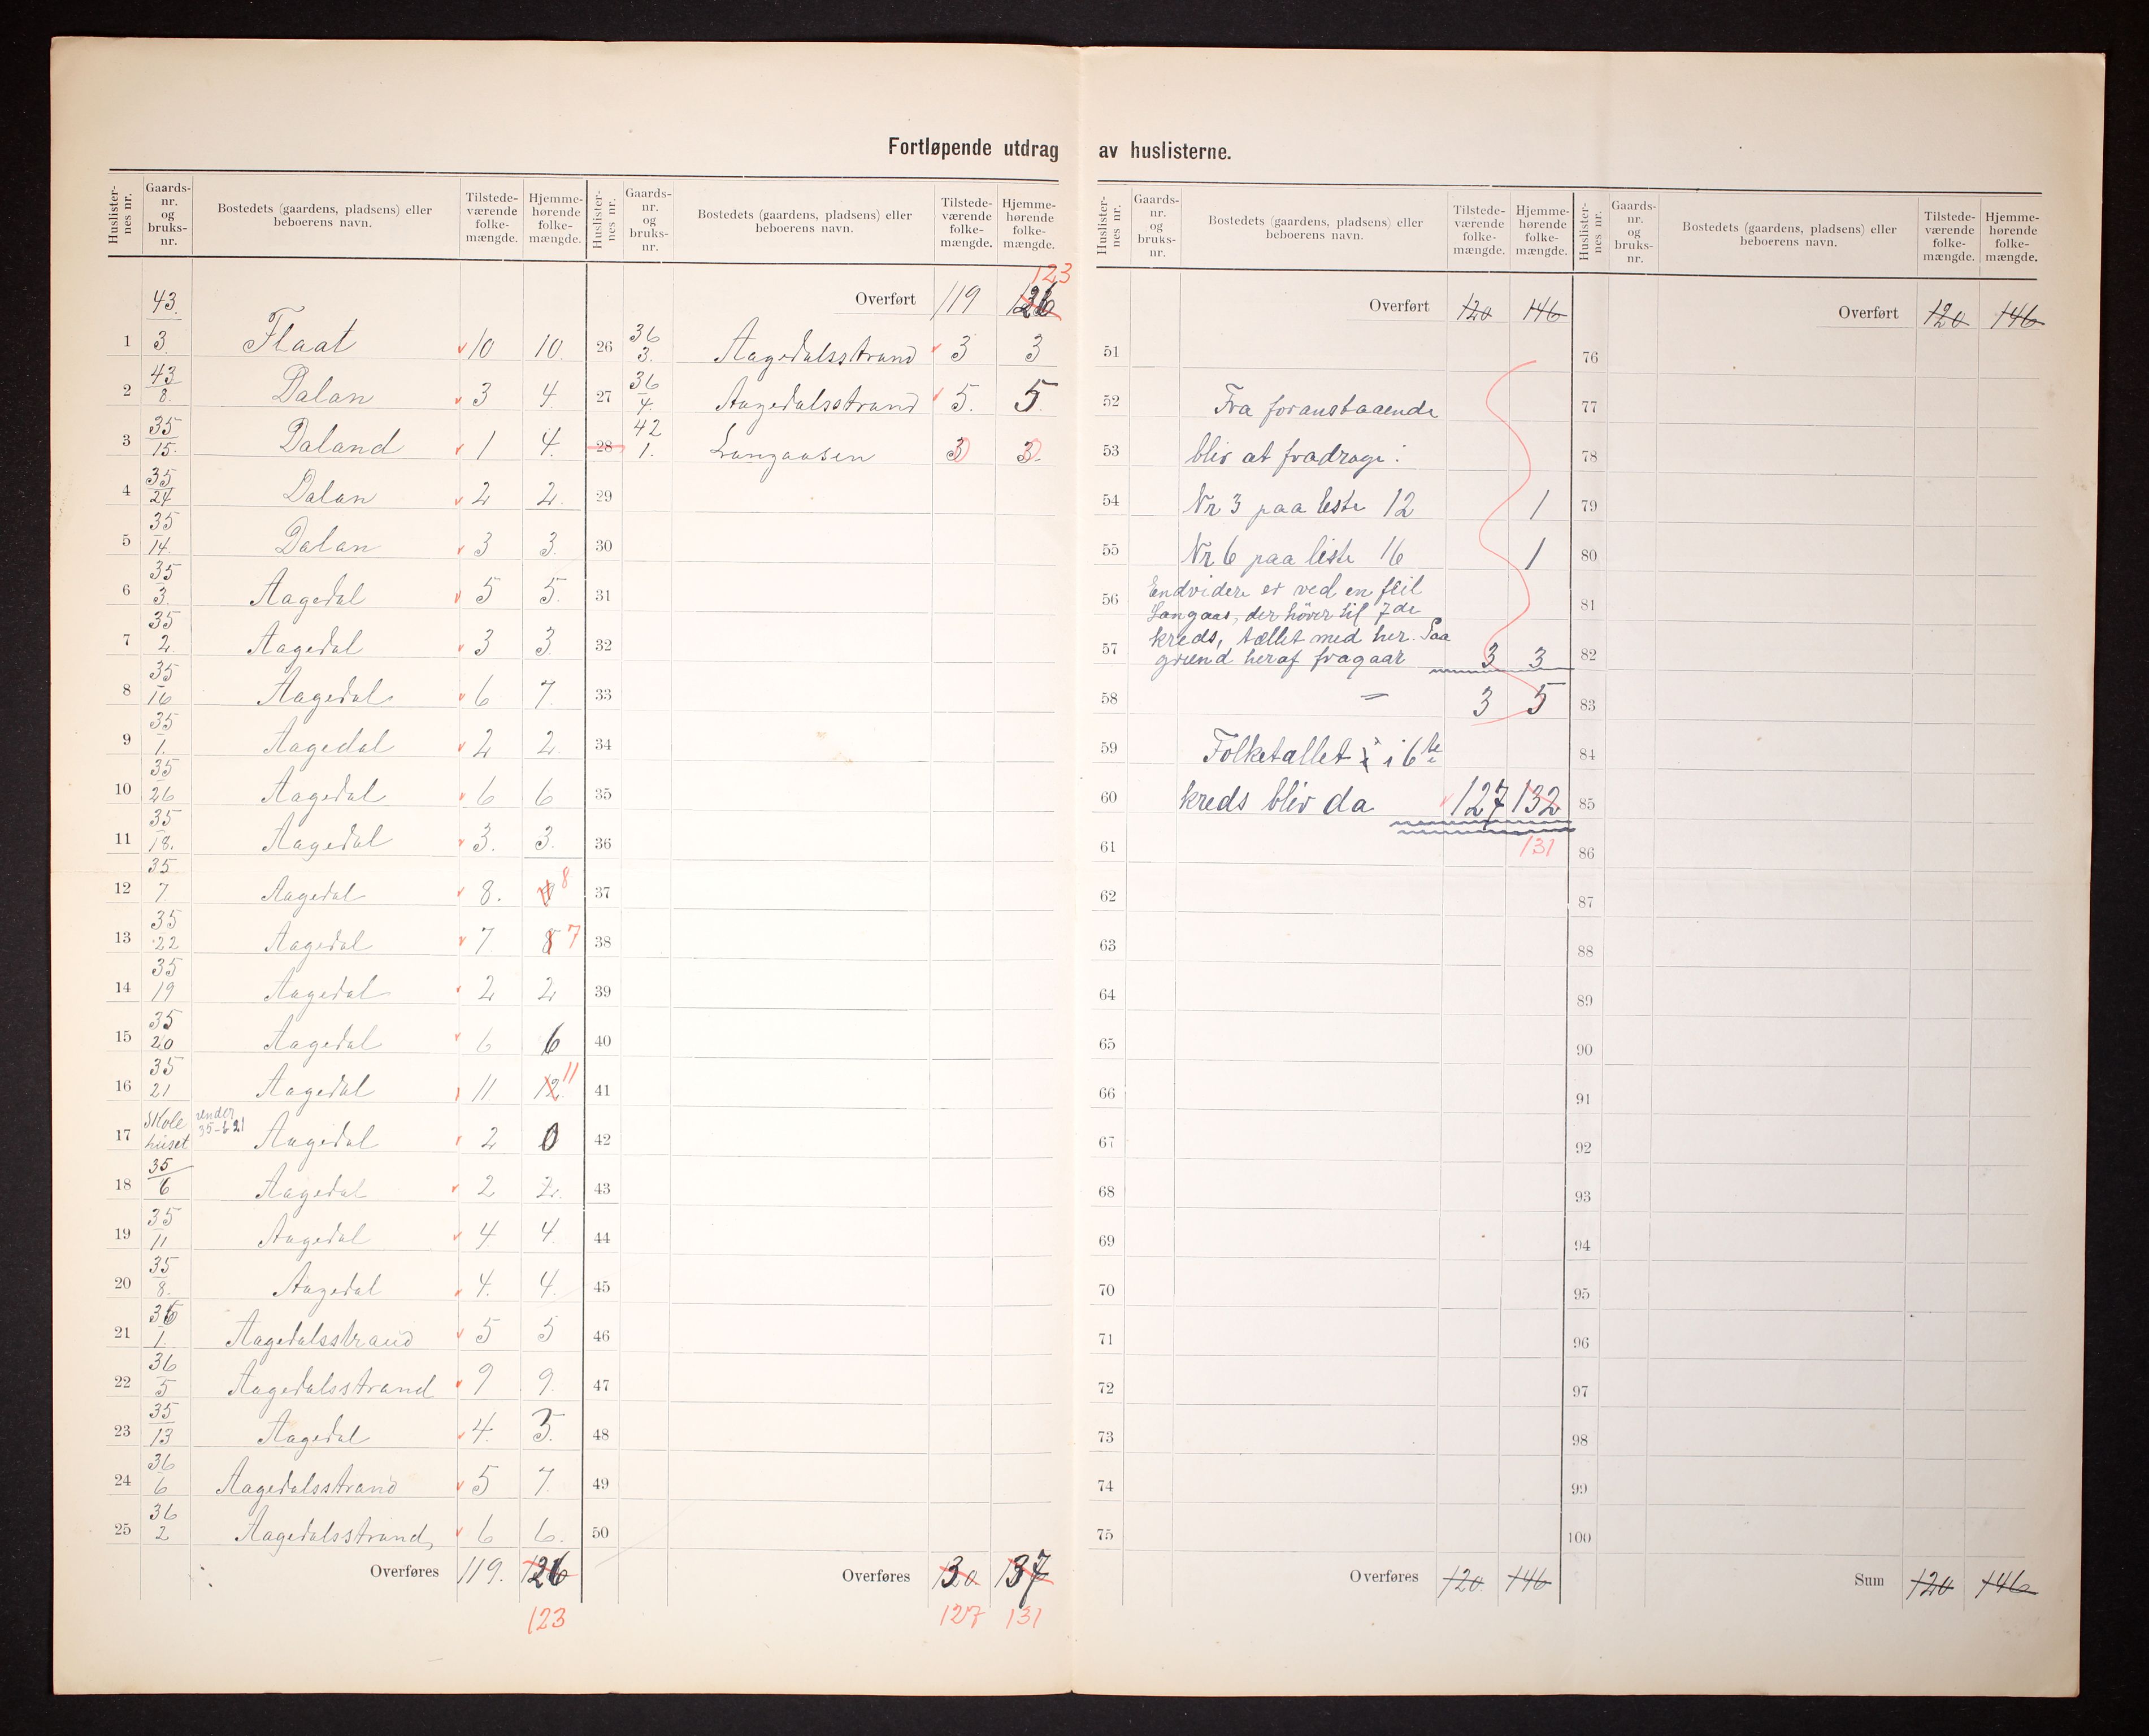 Fortløpende utdrag av huslisterne.
Huslister-nes nr. | Gaards-nr. og bruks-nr. | Bostedets (gaardens, pladsens) eller beboerens navn. | Tilstede-værende folke-mængde. | Hjemme-hørende folke-mængde.
1 43. 3. Flaat 10 10.
2 43 8. Dalan 3 4.
3 35 15. Daland 1 4.
4 35 24 Dalan 2 2.
5 35 14. Dalan 3 3.
6 35 3. Aagedal 5 5.
7 35 2. Aagedal 3 3
8 35 16 Aagedal 6 7.
9 35 1. Aagedal 2 2.
10 35 26 Aagedal 6 6
11 35 18. Aagedal 3. 3.
12 35 7 Aagedal 8. 8
13 35 22 Aagedal 7 8 7
14 35 19 Aagedal 2 2
15 35 20 Aagedal 6 6
16 35 21 Aagedal 11 12 11
17 Skole huset under 35-b21 Aagedal 2 0
18 35 6 Aagedal 2 2.
19 35 11 Aagedal 4 4.
20 35 8. Aagedal 4. 4.
21 36 1. Aagedalsstrand 5 5
22 36 5 Aagedalsstrand 9 9.
23 35 13 Aagedal 4. 5.
24 36 6 Aagedalsstrand 5 7.
25 36 2 Aagedalsstrand, 6 6.
Overføres 119. 126
123
Huslister-nes nr. | Gaards-nr. og bruks-nr. | Bostedets (gaardens, pladsens) eller beboerens navn. | Tilstede-værende folke-mængde. | Hjemme-hørende folke-mængde.
123
Overført 119 126
26 36 3. Aagedalsstrand 3 3
27 36 4. Aagedalsstrand 5. 5.
28 42 1. Langaasen 3 3.
29
30
31
32
33
34
35
36
37
38
39
40
41
42
43
44
45
46
47
48
49
50
Overføres 130 137
127 131
Huslister-nes nr. | Gaards-nr. og bruks-nr. | Bostedets (gaardens, pladsens) eller beboerens navn. | Tilstede-værende folke-mængde. | Hjemme-hørende folke-mængde.
Overført 120 146
51
52 Fra foranstaaende
53 bliv at fradrage:
54 Nr 3 paa leste 12 1
55 Nr 6 paa liste 16 1
56 Endvidere er ved en feil
Langaas, der hører til 7de
57 kreds, tællet med her. Paa
grund heraf fragaar 3 3
58 = 3 5
59 Folketallet i 6te
60 kreds bliv da 127 132
61 131
62
63
64
65
66
67
68
69
70
71
72
73
74
75
Overføres 120 146
Huslister-nes nr. | Gaards-nr. og bruks-nr. | Bostedets (gaardens, pladsens) eller beboerens navn. | Tilstede-værende folke-mængde. | Hjemme-hørende folke-mængde.
Overført 120 146
76
77
78
79
80
81
82
83
84
85
86
87
88
89
90
91
92
93
94
95
96
97
98
99
100
Sum 120 146